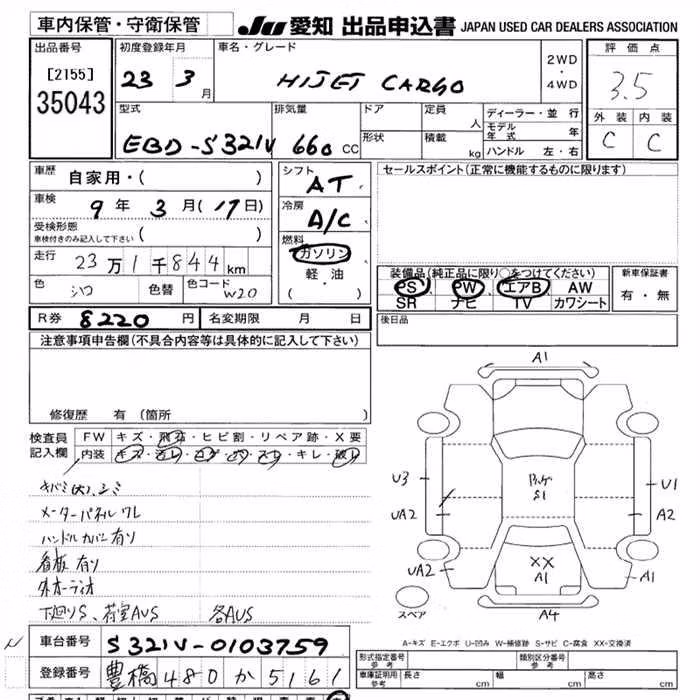 車内保管・守衛保管 JU 愛知 出品申込書 JAPAN USED CAR DEALERS ASSOCIATION
出品番号 初度登録年月 車名・グレード 2WD・4WD 評価点
[2155] 35043 23 3月 HIJET CARGO 3.5
型式 排気量 ドア 定員 人 ディーラー・並行 外装 内装
EBD-S321V 660cc 形状 積載 kg モデル年式 年 C C
ハンドル 左・右
車歴 自家用・( ) シフト AT セールスポイント(正常に機能するものに限ります)
車検 9年 3月(17日) 冷房 A/C
受検形態 車検付きのみ記入して下さい ( )
燃料 ガソリン 軽・油 (・)
走行 23万1千844km
色 シロ 色替 色コード W20
装備品(純正品に限り○をつけてください) 新車保証書
PS PW エアB AW 有・無
SR ナビ TV カワシート
R券 8220円 名変期限 月 日 後日品
注意事項申告欄(不具合内容等は具体的に記入して下さい)
修復歴 有(箇所
検査員記入欄 FW キズ・飛石・ヒビ割・リペア跡・X要
内装 キズ・
キレ・
キバミ
シミ
メーターパネルワレ
ハンドルカバー有り
看板有り
外オーディオ
下廻りS、荷室AUS 各AUS
A1
U3 U1
S1
UA2 A2
UA2 XX A1 A1
スペア A4
A-キズ E-エクボ U-凹み W-補修跡 S-サビ C-腐食 XX-交換済
車台番号 S321V-0103759
登録番号 豊橋 480 か 5161
形式指定番号 参考 類別区分番号 参考
車庫証明用 参考 長さ cm 幅 cm 高さ cm